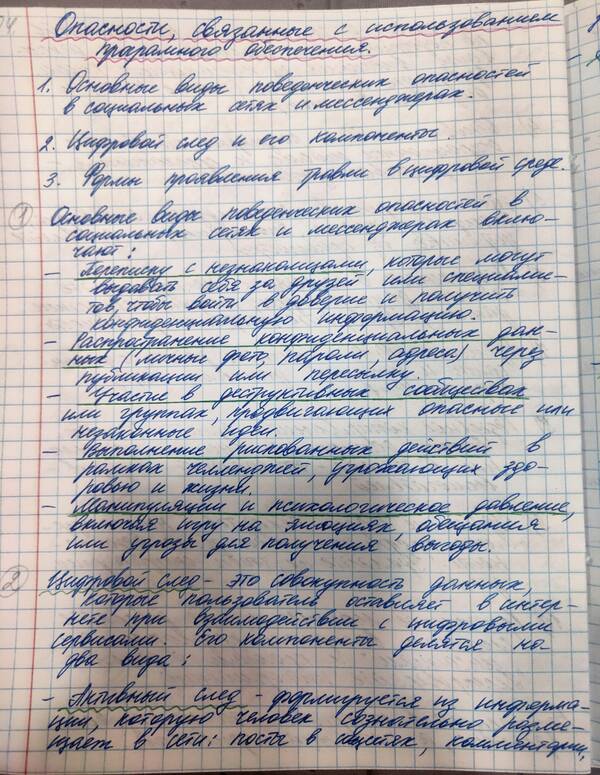 Опасности, связанные с использованием
програмного обеспечения.
1. Основные виды поведенческих опасностей
в социальных сетях и мессенджерах.
2. Цифровой след и его компоненты.
3. Формы проявления травли в цифровой среде.
1 Основные виды поведенческих опасностей в
социальных сетях и мессенджерах вклю-
чают:
- Переписку с незнакомцами, которые могут
выдавать себя за друзей или специалис-
тов, чтобы войти в доверие и получить
конфиденциальную информацию.
- Распространение конфиденциальных дан-
ных (личные фото, пароли, адреса) через
публикации или пересылку
- Участие в деструктивных сообществах
или группах, продвигающих опасные или
незаконные идеи.
- Выполнение рискованных действий в
рамках челленджей, угрожающих здо-
ровью и жизни.
- Манипуляции и психологическое давление,
включая игру на эмоциях, обещания
или угрозы для получения выгоды.
2 Цифровой след - это совокупность данных,
которые пользователь оставляет в интер-
нете при взаимодействии с цифровыми
сервисами. Его компоненты делятся на
два вида:
- Активный след - формируется из информа-
ции, которую человек сознательно разме-
щает в сети: посты в соцсетях, комментарии,